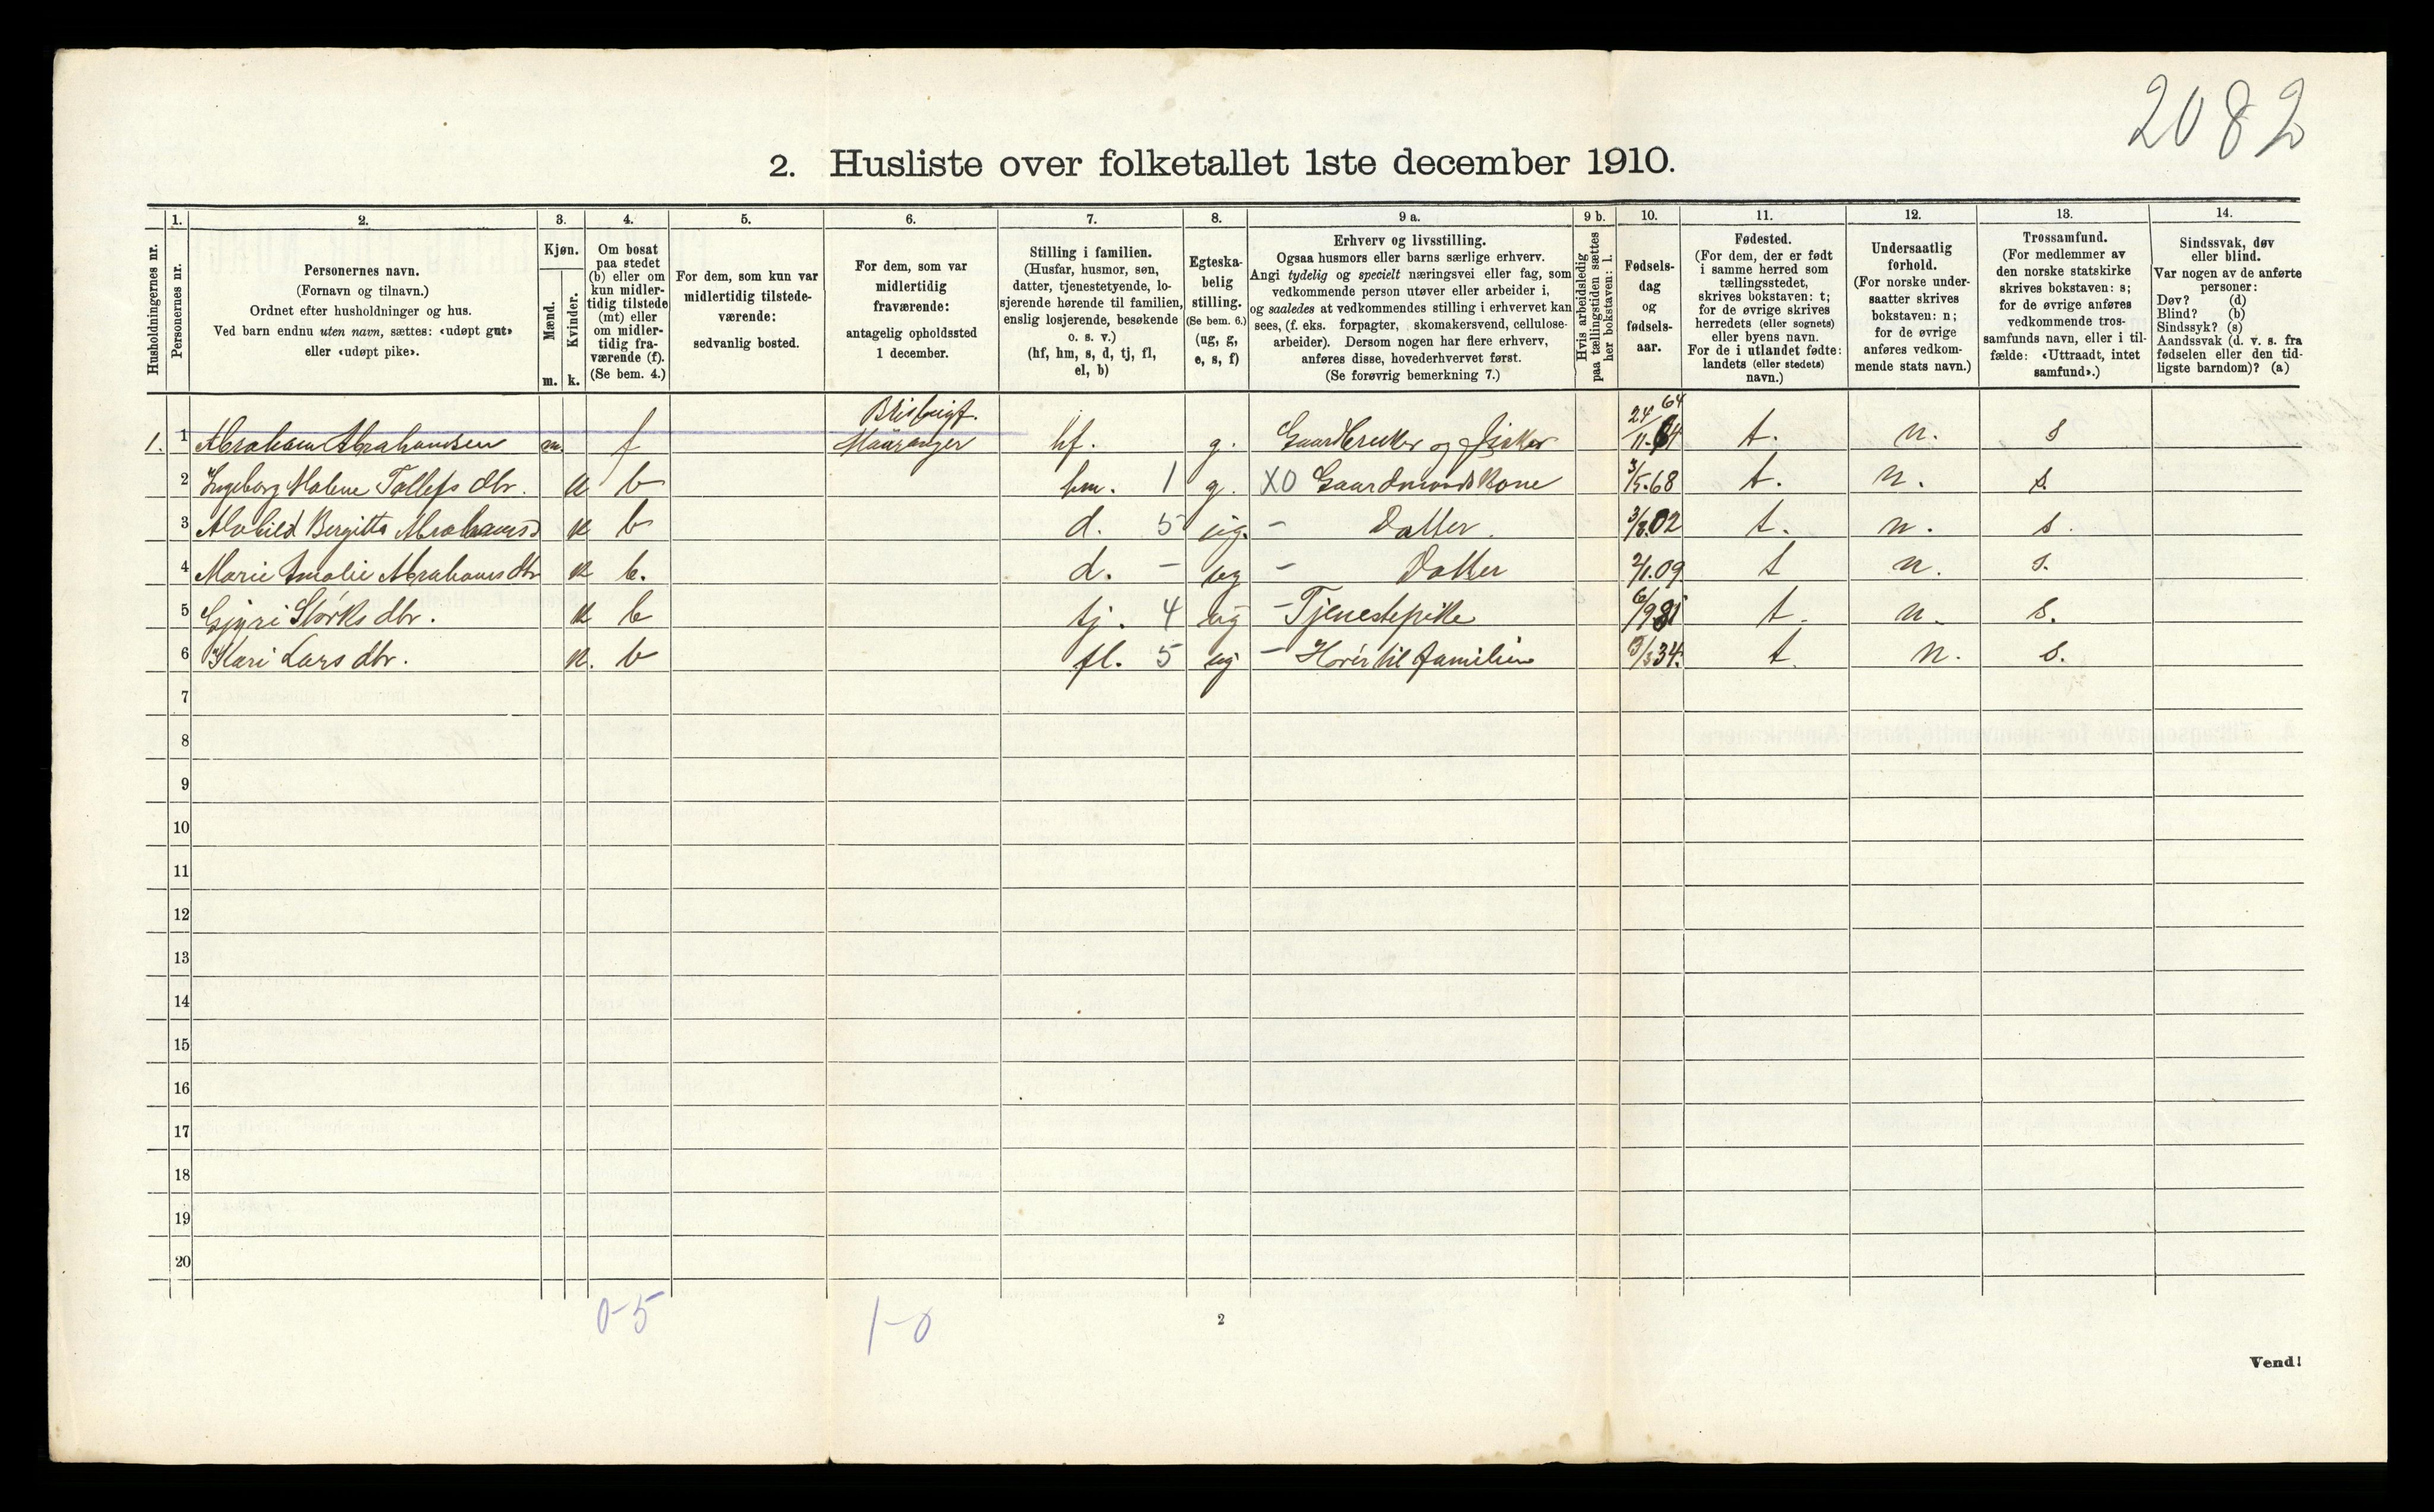 2082
2. Husliste over folketallet 1ste december 1910.
Husholdningernes nr.
1.
Personernes nr.
2.
Personernes navn.
(Fornavn og tilnavn.)
Ordnet efter husholdninger og hus.
Ved barn endnu uten navn, sættes: «udøpt gut»
eller «udøpt pike».
3.
Kjøn.
Mænd.
Kvinder.
m. k.
4.
Om bosat
paa stedet
(b) eller om
kun midler-
tidig tilstede
(mt) eller
om midler-
tidig fra-
værende (f).
(Se bem. 4.)
5.
For dem, som kun var
midlertidig tilstede-
værende:
sedvanlig bosted.
6.
For dem, som var
midlertidig
fraværende:
antagelig opholdssted
1 december.
7.
Stilling i familien.
(Husfar, husmor, søn,
datter, tjenestetyende, lo-
sjerende hørende til familien,
enslig losjerende, besøkende
o. s. v.)
(hf, hm, s, d, tj, fl,
el, b)
8.
Egteska-
belig
stilling.
(Se bem. 6.)
(ug, g,
e, s, f)
9 a.
Erhverv og livsstilling.
Ogsaa husmors eller barns særlige erhverv.
Angi tydelig og specielt næringsvei eller fag, som
vedkommende person utøver eller arbeider i,
og saaledes at vedkommendes stilling i erhvervet kan
sees, (f. eks. forpagter, skomakersvend, cellulose-
arbeider). Dersom nogen har flere erhverv,
anføres disse, hovederhvervet først.
(Se forøvrig bemerkning 7.)
9 b.
Hvis arbeidsledig
paa tællingstiden sættes
her bokstaven: l.
10.
Fødsels-
dag
og
fødsels-
aar.
11.
Fødested.
(For dem, der er født
i samme herred som
tællingsstedet,
skrives bokstaven: t;
for de øvrige skrives
herredets (eller sognets)
eller byens navn.
For de i utlandet fødte:
landets (eller stedets)
navn.)
12.
Undersaatlig
forhold.
(For norske under-
saatter skrives
bokstaven: n;
for de øvrige
anføres vedkom-
mende stats navn.)
13.
Trossamfund.
(For medlemmer av
den norske statskirke
skrives bokstaven: s;
for de øvrige anføres
vedkommende tros-
samfunds navn, eller i til-
fælde: «Uttraadt, intet
samfund».)
14.
Sindssvak, døv
eller blind.
Var nogen av de anførte
personer:
Døv? (d)
Blind? (b)
Sindssyk? (s)
Aandssvak (d. v. s. fra
fødselen eller den tid-
ligste barndom)? (a)
1. 1 Abraham Abrahamsen m. f Mauranger hf. g. Gaardbruker og fisker 24/11-64 64 t. n. s
2 Ingeborg Malene Tollefs dtr. k b hm. 1 g. XO Gaardmandskone 3/5-68 t. n. s.
3 Alvhild Bergitta Abrahamsd k b d. 5 ug. - Datter. 3/8.02 t. n. s.
4 Marie Amalie Abrahams dtr k b. d. - ug - Datter 2/1.09 t n. s.
5 Gjyri Størks dtr. k b tj. 4 ug - Tjenestepike t. n. s.
6 Kari Lars dtr. k. b fl. 5 ug - Hører til familien 3/3 34. t. n. s.
7
8
9
10
11
12
13
14
15
16
17
18
19
20
0-5
1-0
2
Vend!